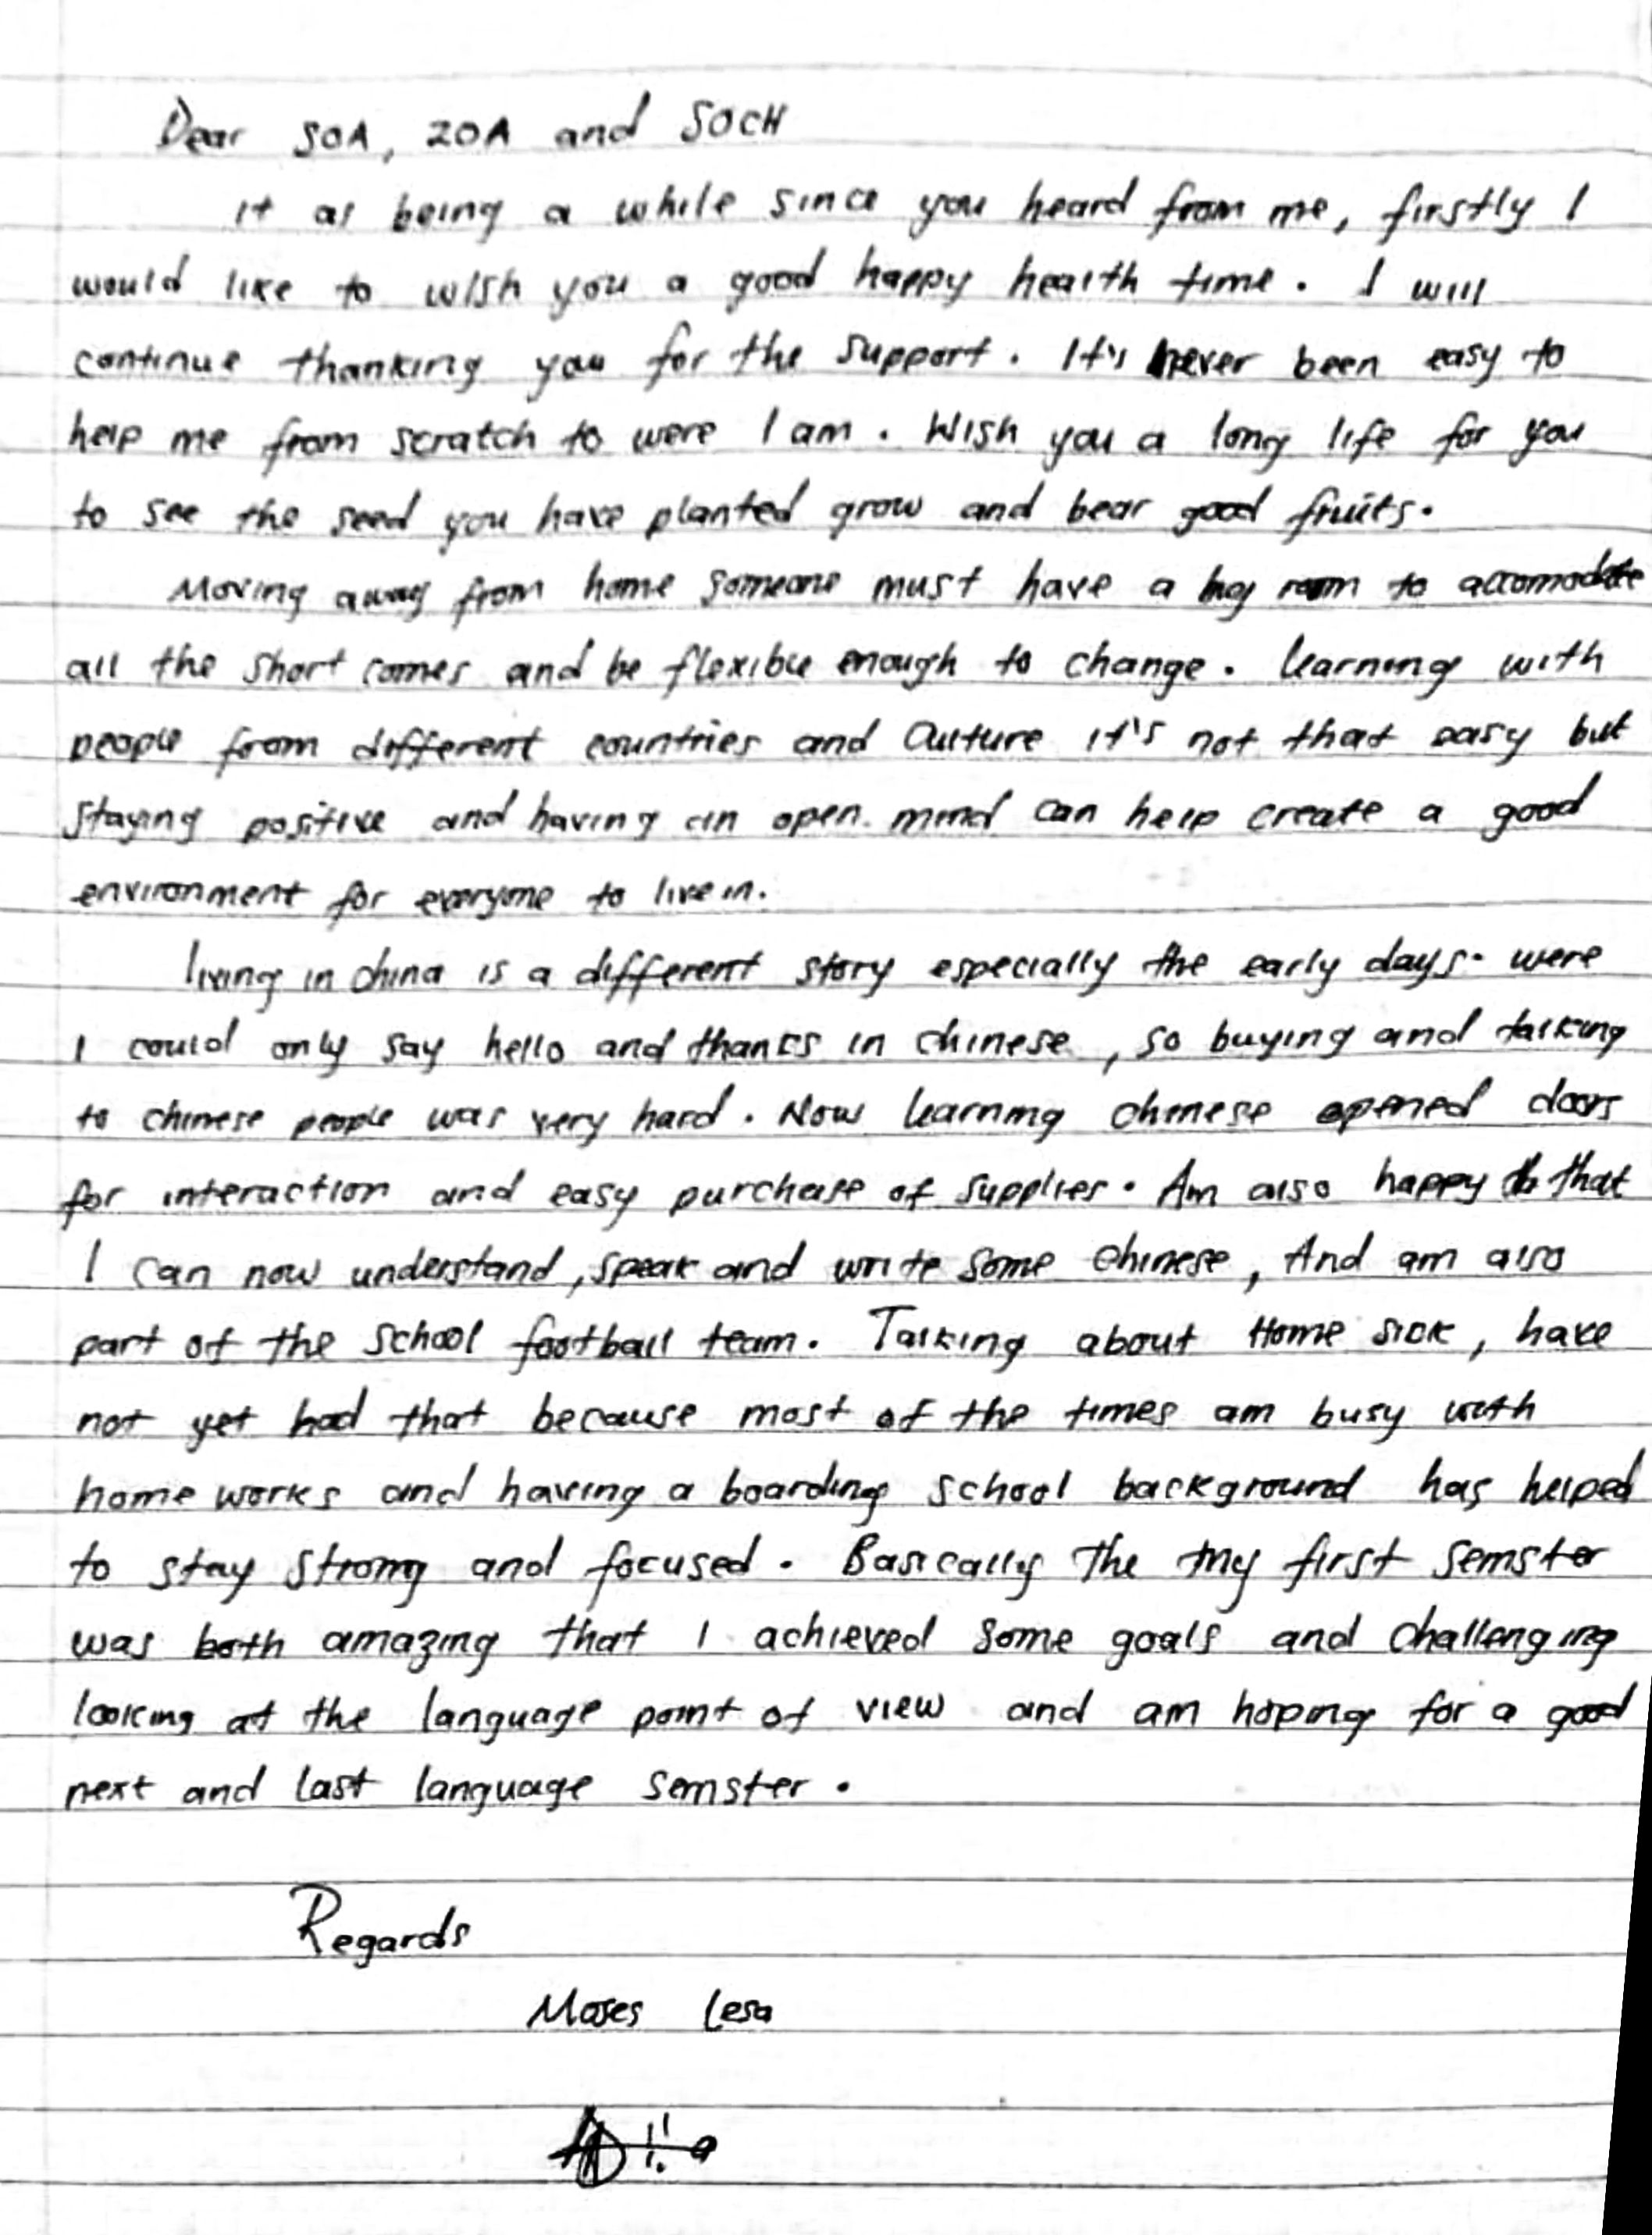 Dear SOA, ZOA and SOCH
It as being a while since you heard from me, firstly I
would like to wish you a good happy health time. I will
continue thanking you for the support. It's never been easy to
help me from scratch to were I am. Wish you a long life for you
to see the seed you have planted grow and bear good fruits.
Moving away from home someone must have a big room to accomodate
all the short comes and be flexible enough to change. Learning with
people from different countries and Culture it's not that easy but
staying positive and having an open mind can help create a good
environment for everyone to live in.
Living in China is a different story especially the early days. were
I could only say hello and thanks in chinese, so buying and talking
to chinese people was very hard. Now learning chinese opened doors
for interaction and easy purchase of supplies. Am also happy that
I can now understand, speak and write some chinese, And am also
part of the school football team. Talking about Home sick, have
not yet had that because most of the times am busy with
home works and having a boarding school background has helped
to stay strong and focused. Basically The my first semster
was both amazing that I achieved some goals and challenging
looking at the language point of view and am hoping for a good
next and last language semster.
Regards
Moses Lesa